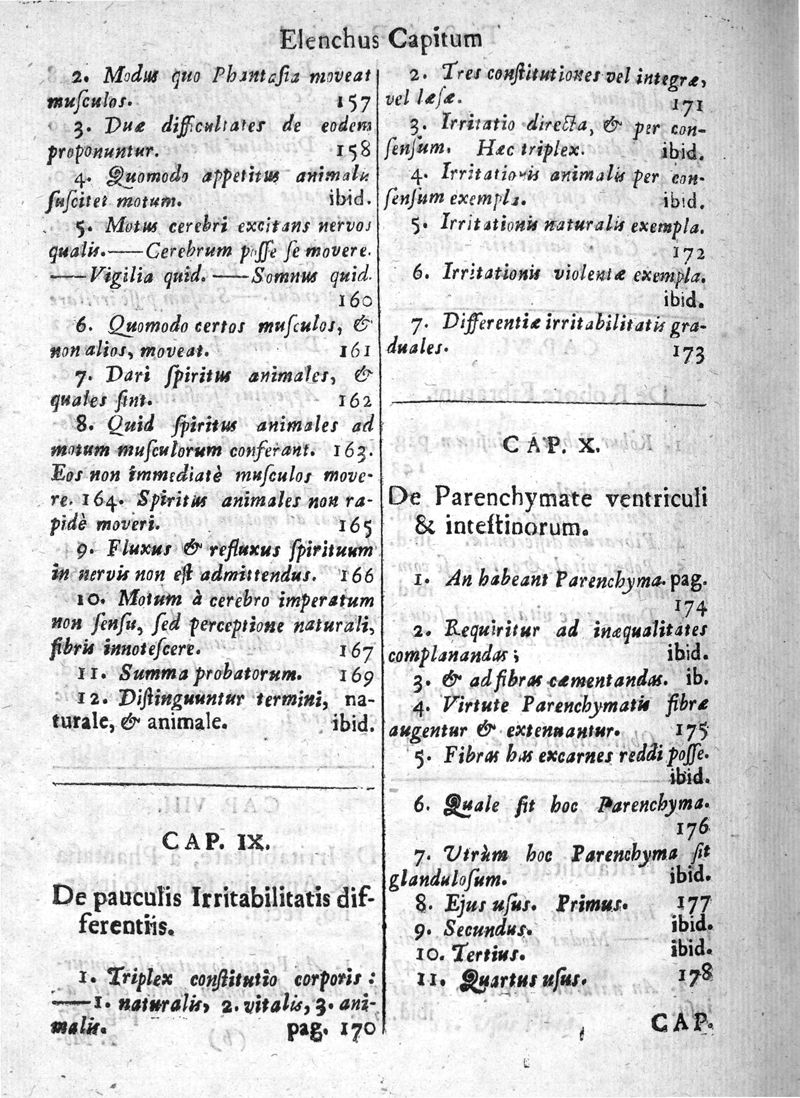 Elenchus Capitum
2. Modus quo Phantaſia moveat
muſculos. 157
3. Duæ difficultates de eodem
proponuntur. 158
4. Quomodo appetitus animalis
ſuſcitet motum. ibid.
5. Motus cerebri excitans nervos
qualis.——Cerebrum poſſe ſe movere.
——Vigilia quid.——Somnus quid.
160
6. Quomodo certos muſculos, &
non alios, moveat. 161
7. Dari ſpiritus animales, &
quales ſint. 162
8. Quid ſpiritus animales ad
motum muſculorum conferant. 163.
Eos non immediatè muſculos move-
re. 164. Spiritus animales non ra-
pidè moveri. 165
9. Fluxus & refluxus ſpirituum
in nervis non eſt admittendus. 166
10. Motum à cerebro imperatum
non ſenſu, ſed perceptione naturali,
fibris innoteſcere. 167
11. Summa probatorum. 169
12. Diſtinguuntur termini, na-
turale, & animale. ibid.
CAP. IX.
De pauculis Irritabilitatis dif-
ferentiis.
1. Triplex conſtitutio corporis:
——1. naturalis, 2. vitalis, 3. ani-
malis. pag. 170
2. Tres conſtitutiones vel integræ,
vel læſæ. 171
3. Irritatio directa, & per con-
ſenſum. Hæc triplex. ibid.
4. Irritationis animalis per con-
ſenſum exempla. ibid.
5. Irritationis naturalis exempla.
172
6. Irritationis violentæ exempla.
ibid.
7. Differentiæ irritabilitatis gra-
duales. 173
CAP. X.
De Parenchymate ventriculi
& inteſtinorum.
1. An habeant Parenchyma. pag.
174
2. Requiritur ad inæqualitates
complanandas; ibid.
3. & ad fibras cæmentandas. ib.
4. Virtute Parenchymatis fibræ
augentur & extenuantur. 175
5. Fibras has excarnes reddi poſſe.
ibid.
6. Quale ſit hoc Parenchyma.
176
7. Utrùm hoc Parenchyma ſit
glanduloſum. ibid.
8. Ejus uſus. Primus. 177
9. Secundus. ibid.
10. Tertius. ibid.
11. Quartus uſus. 178
CAP.